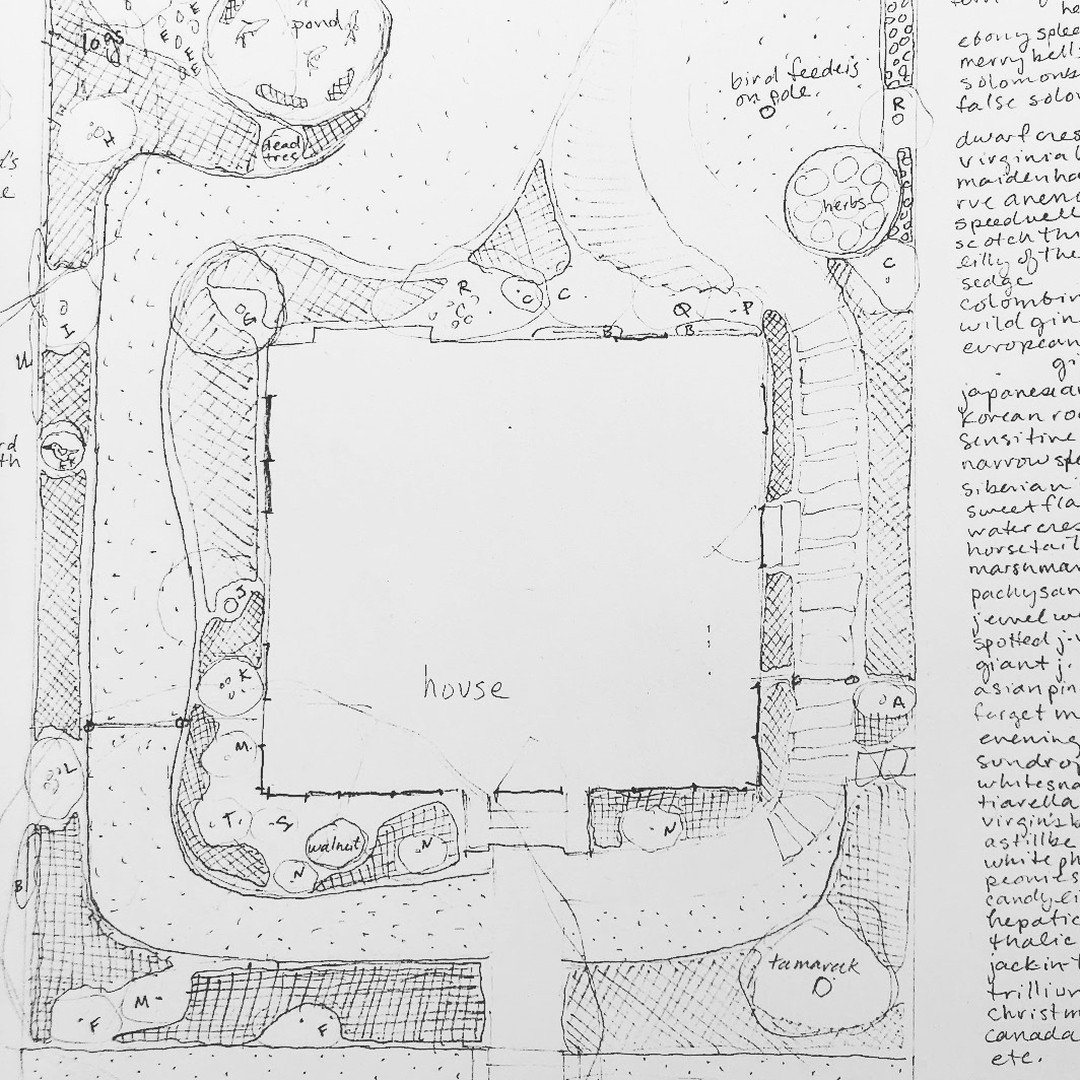 logs
pond
E
E
E
E
E
dead
tree
H
bird feeders
on pole.
R
herbs
C
I
G
R
C
C
C
Q
P
B
B
J
K
M
house
L
T
S
walnut
N
N
N
A
B
M
F
F
tamarack
ebony splee
merry bells
solomons
false solom
dwarf cres
virginia b
maidenha
rue anem
speedwell
scotch th
lilly of the
sedge
colombin
wild gin
european
gi
japanese a
korean ro
sensitive
narrow sp
siberian
sweet fla
watercres
horsetail
marshmar
pachysan
jewel w
spotted j.
giant j.
asian pin
forget m
evening
sundrop
white sna
tiarella
virgin's b
astilbe
white ph
peonies
candy li
hepatic
thalic
jack in t
trillium
christm
canada
etc.